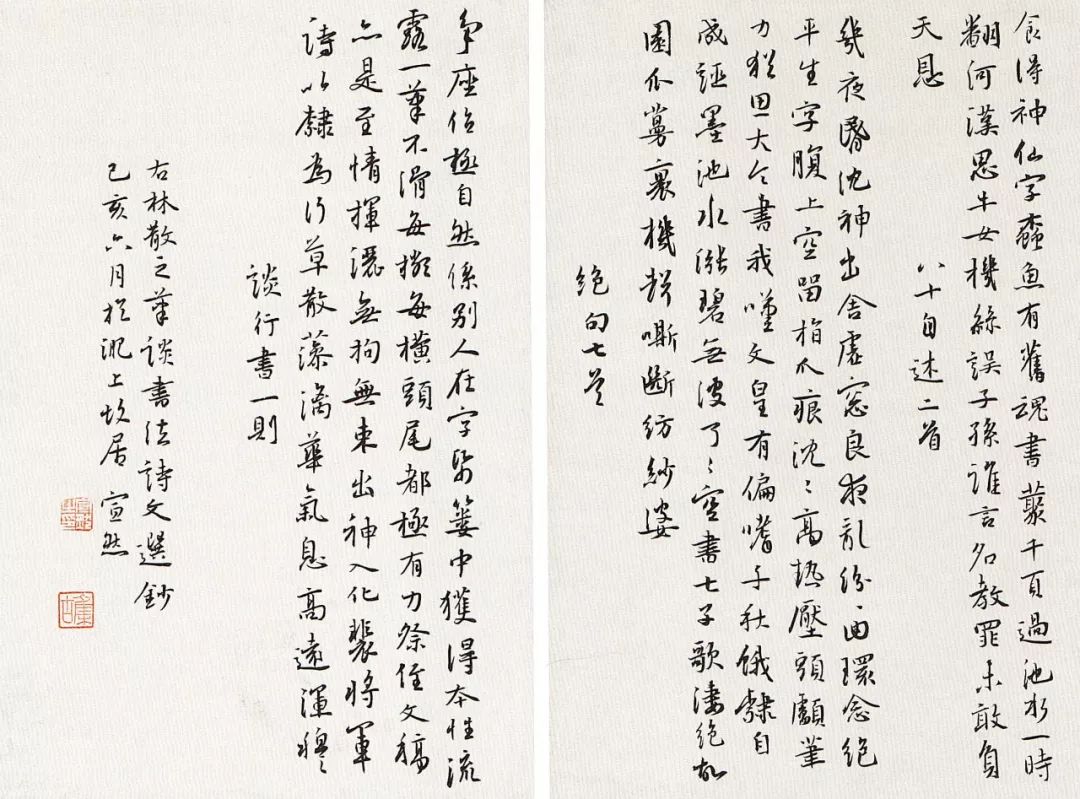 食得神仙字蠹魚有舊魂書叢千百過池水一時
翻河漢思牛女機絲誤子孫誰言名教罪未敢負
天恩 八十自述二首
幾夜昏沈神出舍虛窗良夜亂紛〻回環念絕
平生字腹上空留指爪痕沈〻高熱壓頭顱筆
力猶思大令書我嘆文皇有偏嗜千秋餓隸自
成誣墨池水漲碧無波了〻空書七字歌淒絕故
園瓜蔓裏機聲嘶斷紡紗婆
絕句七首
爭座位極自然係別人在字紙簍中獲得本性流
露一筆不滑每每橫頭尾都極有力祭侄文稿
亦是至情揮灑無拘無束出神入化裴將軍
詩以隸為行草散藻漓華氣息高遠渾穆
談行書一則
右林散之筆談書法詩文選鈔
己亥六月於滬上坎居 宣然